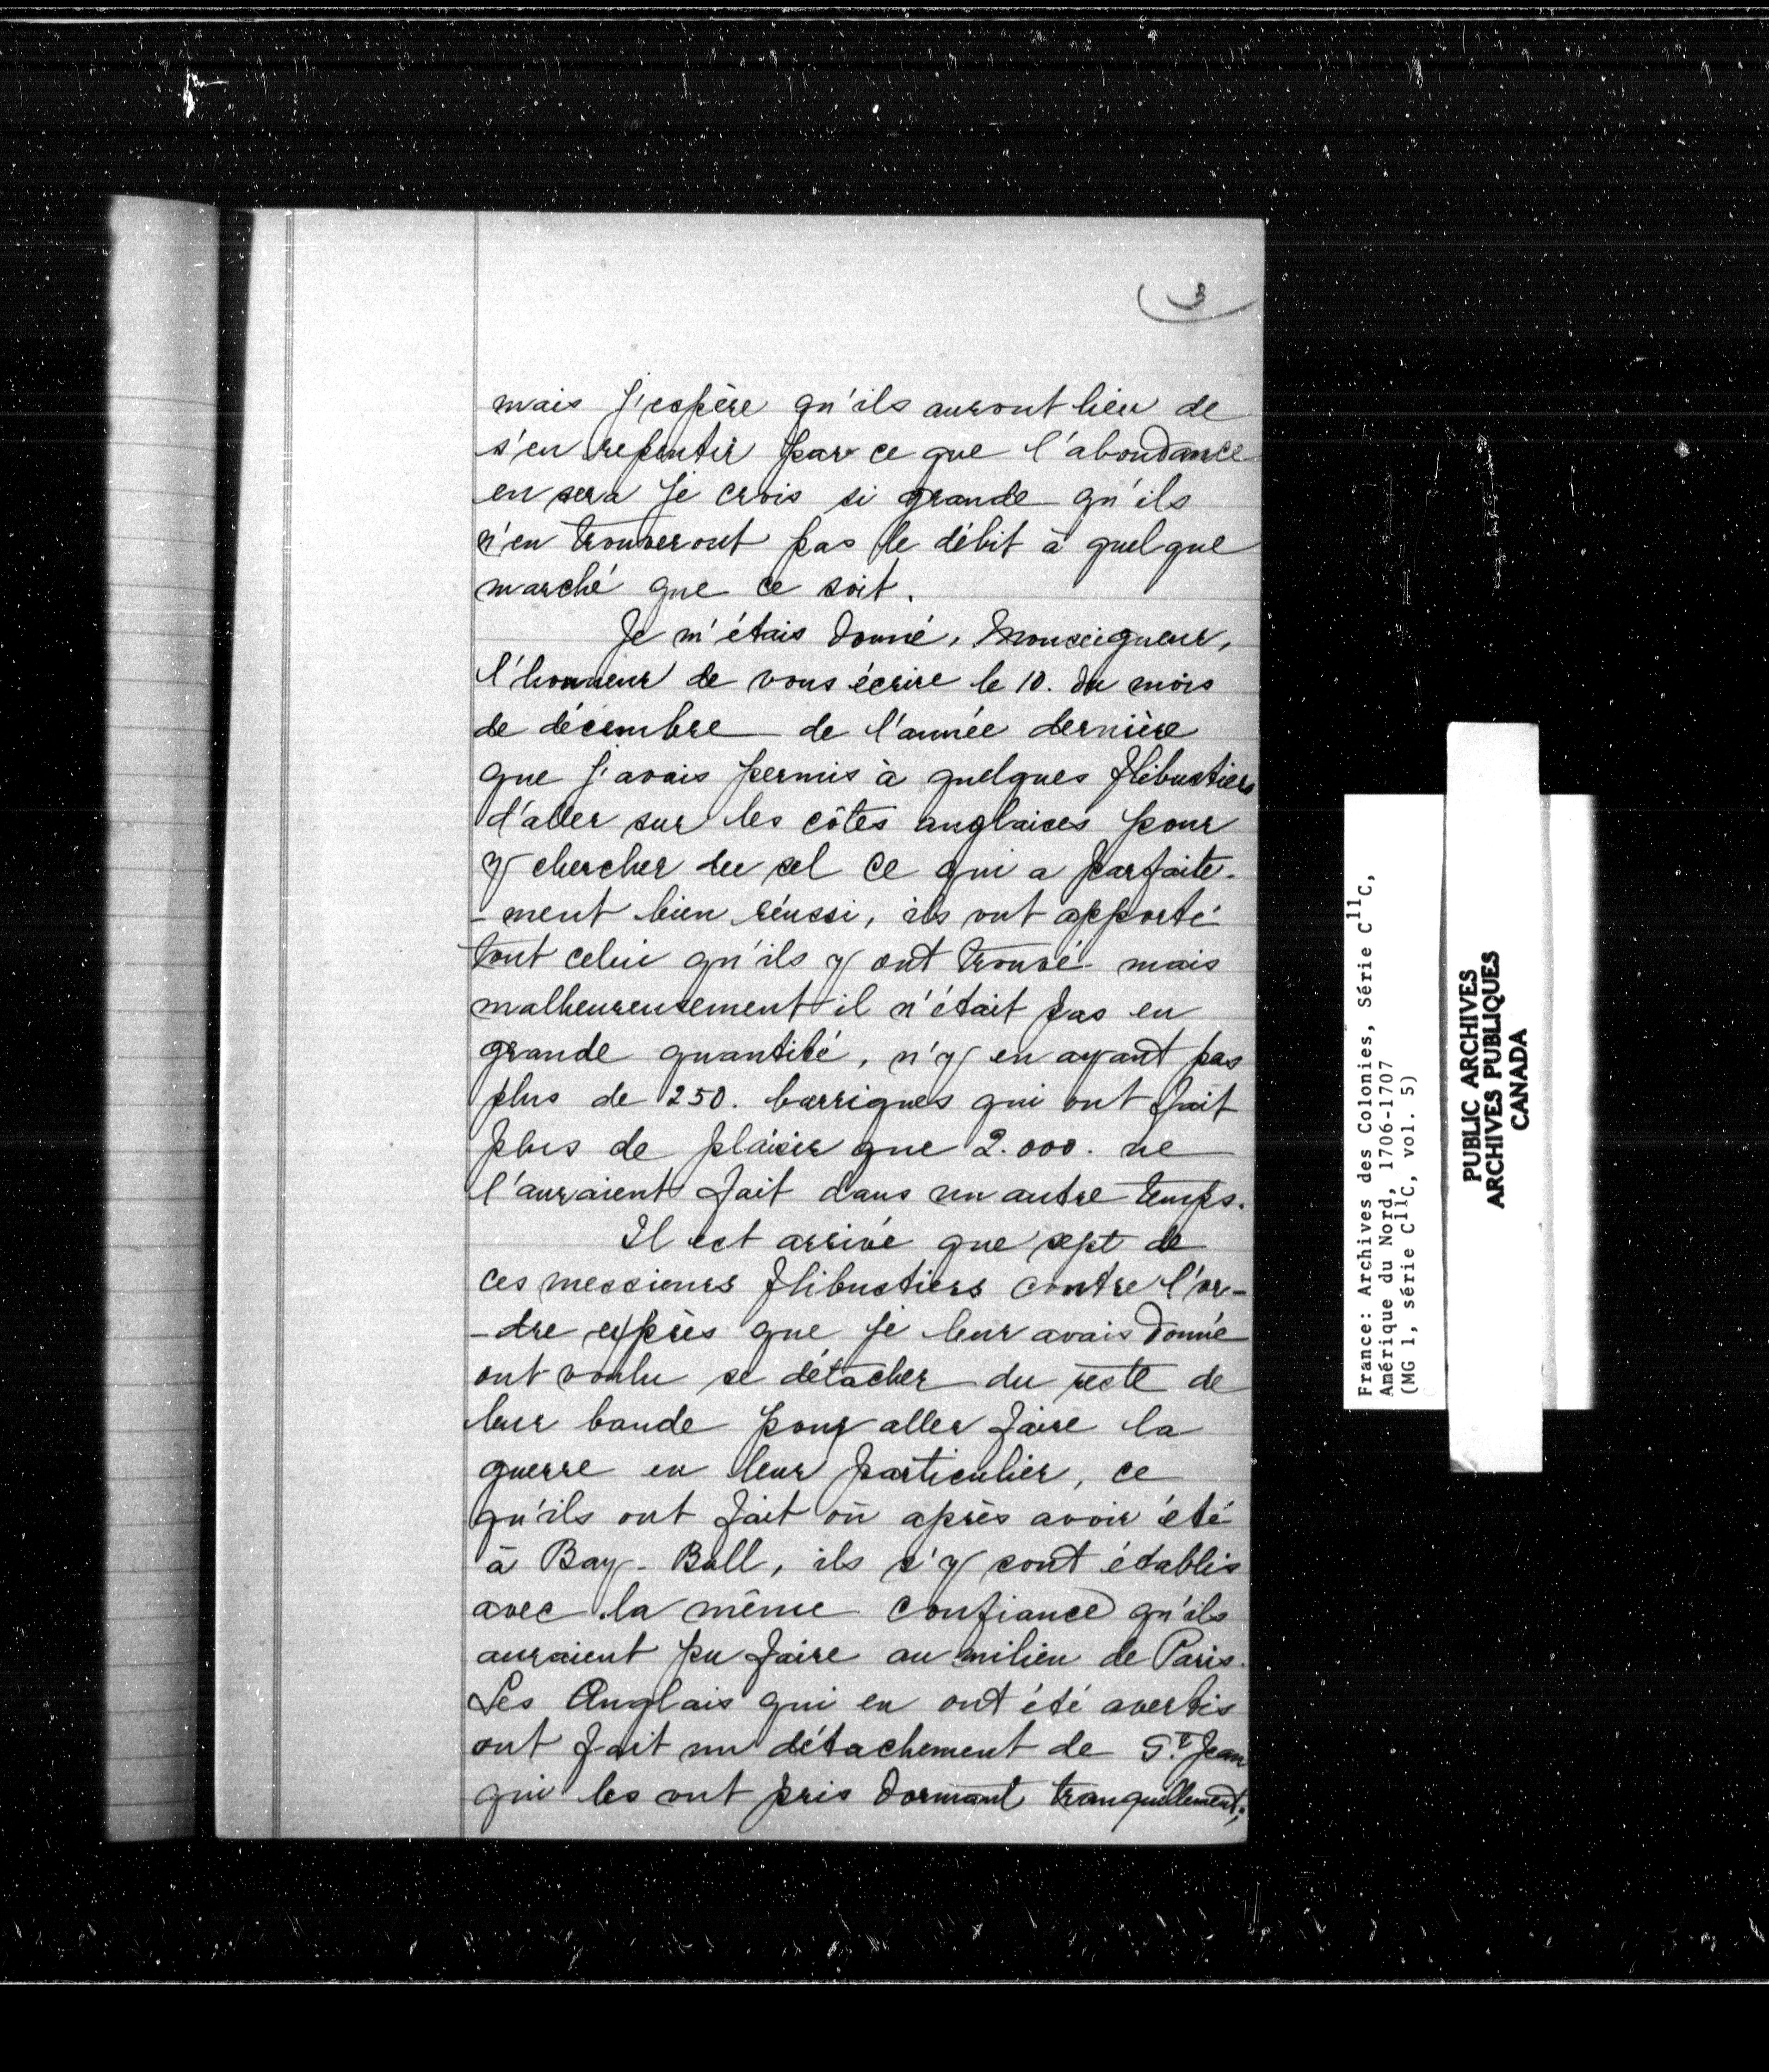 3
mais j'espère qu'ils auront lieu de
s'en repentir par ce que l'abondance
en sera je crois si grande qu'ils
n'en trouveront pas le débit à quelque
marché que ce soit.
Je m'étais donné, Monseigneur,
l'honneur de vous écrire le 10. du mois
de décembre de l'année dernière
que j'avais permis à quelques flibustiers
d'aller sur les côtes anglaises pour
y chercher du sel ce qui a parfaite-
-ment bien réussi, ils ont apporté
tout celui qu'ils y ont trouvé mais
malheureusement il n'était pas en
grande quantité, n'y en ayant pas
plus de 250. barriques qui ont fait
plus de plaisir que 2.000. ne
l'auraient fait dans un autre temps.
Il est arrivé que sept de
ces messieurs flibustiers contre l'or-
-dre exprès que je leur avais donné
ont voulu se détacher du reste de
leur bande pour aller faire la
guerre en leur particulier, ce
qu'ils ont fait où après avoir été
à Bay-Boll, ils s'y sont établis
avec la même confiance qu'ils
auraient pu faire au milieu de Paris.
Les Anglais qui en ont été avertis
ont fait un détachement de St. Jean
qui les ont pris dormant tranquillement;
France: Archives des Colonies, Série C11C,
Amérique du Nord, 1706-1707
(MG 1, série C11C, vol. 5)
PUBLIC ARCHIVES
ARCHIVES PUBLIQUES
CANADA